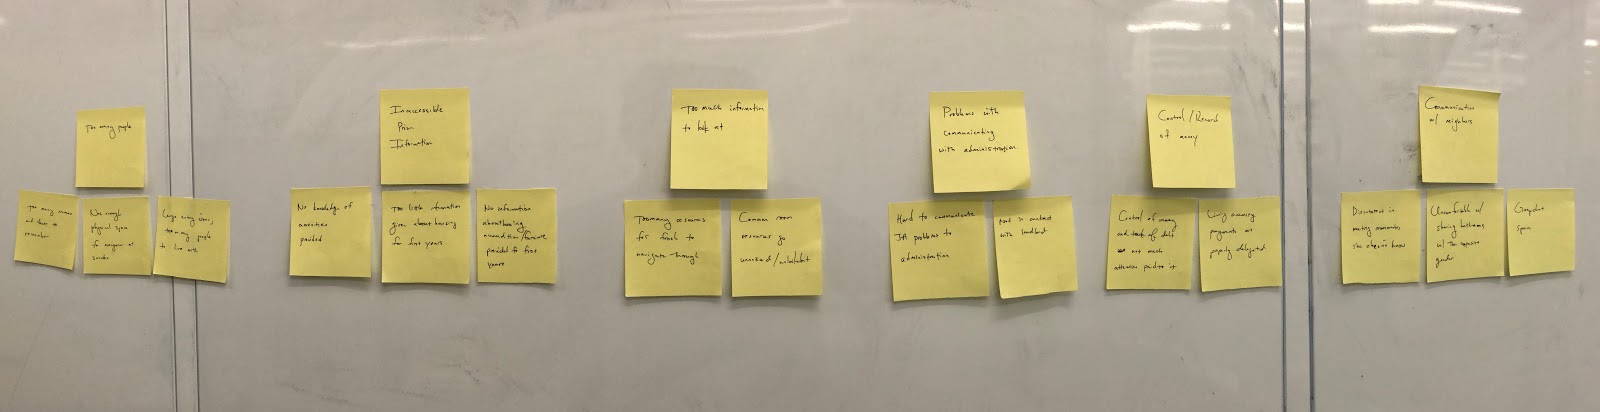 Too many people
Too many names
and faces to
remember
Not enough
physical space
if everyone is
too many people
to live with
Inaccessible
Prior
Information
No knowledge of
amenities
provided
Too little information
given about housing
for first years
No information
about housing
provided to first
years
Too much information
to look at
Too many resources
for frosh to
navigate through
Common room
resources go
unused/
Problems with
communicating
with administration
Hard to communicate
problems to
administration
Not in contact
with landlord
Control/Record
of money
Control of money
and track of
not much
attention paid to it
Living
payments
properly delegated
Communication
w/ neighbors
Disinterested in
meeting
Uncomfortable w/
sharing bathrooms
w/ the opposite
gender
space